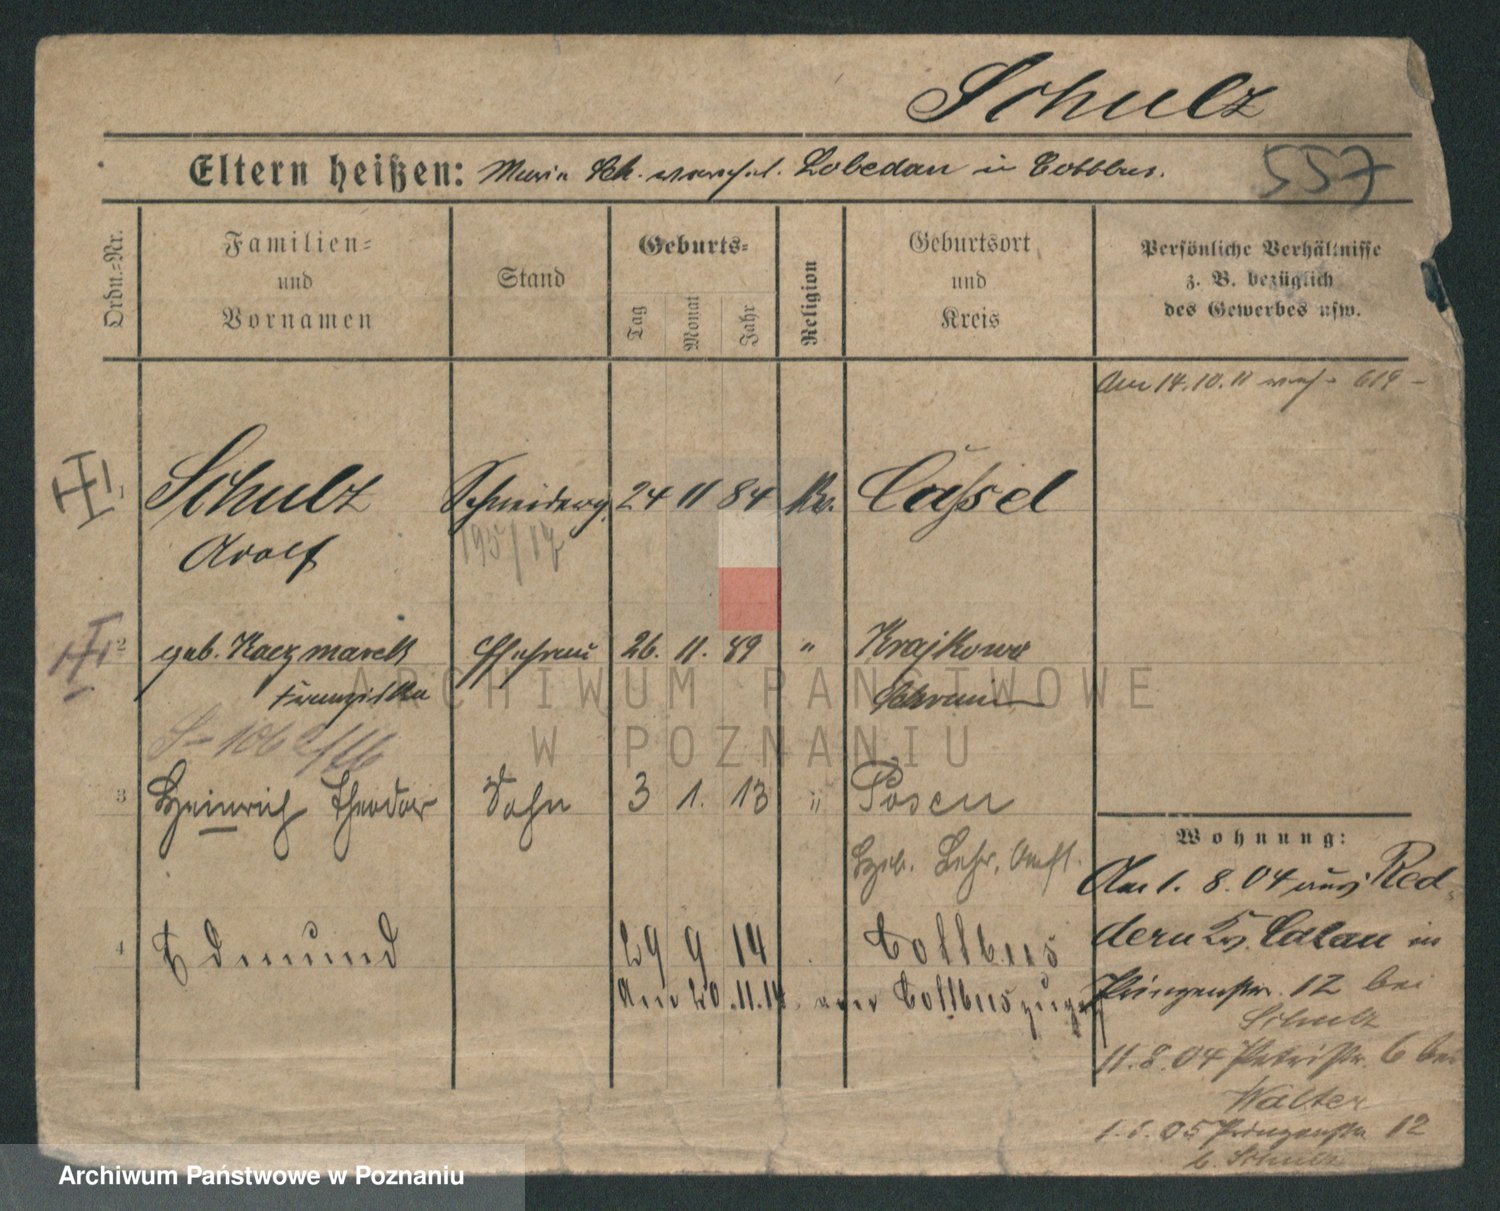 Schulz
Eltern heißen: Maria Sch. verehel. Lobedan in Cottbus.
557
Ordn.-Nr.
Familien-
und
Vornamen
Stand
Geburts-
Tag
Monat
Jahr
Religion
Geburtsort
und
Kreis
Persönliche Verhältnisse
z. B. bezüglich
des Gewerbes usw.
Am 14.10.11 619
1 Schulz Schneiderg. 24 11 84 Cassel
Adolf 195/17
2 geb. Kaczmarek Ehefrau 26. 11. 89 " Krajkowo
Franziska Schrimm
106
3 Heinrich Theodor Sohn 3 1. 13 " Posen
4 Edmund 29 9 14 Cottbus
Am 20.11.14 von Cottbus zugez.
Wohnung:
Am 1. 8. 04 aus Red-
dern Kr. Calau in
Prinzenstr. 12 bei
Schulz
11.8.04 Petristr. 6 bei
Walter
05 Prinzenstr 12
b. Schulz
ARCHIWUM PAŃSTWOWE
W POZNANIU
Archiwum Państwowe w Poznaniu